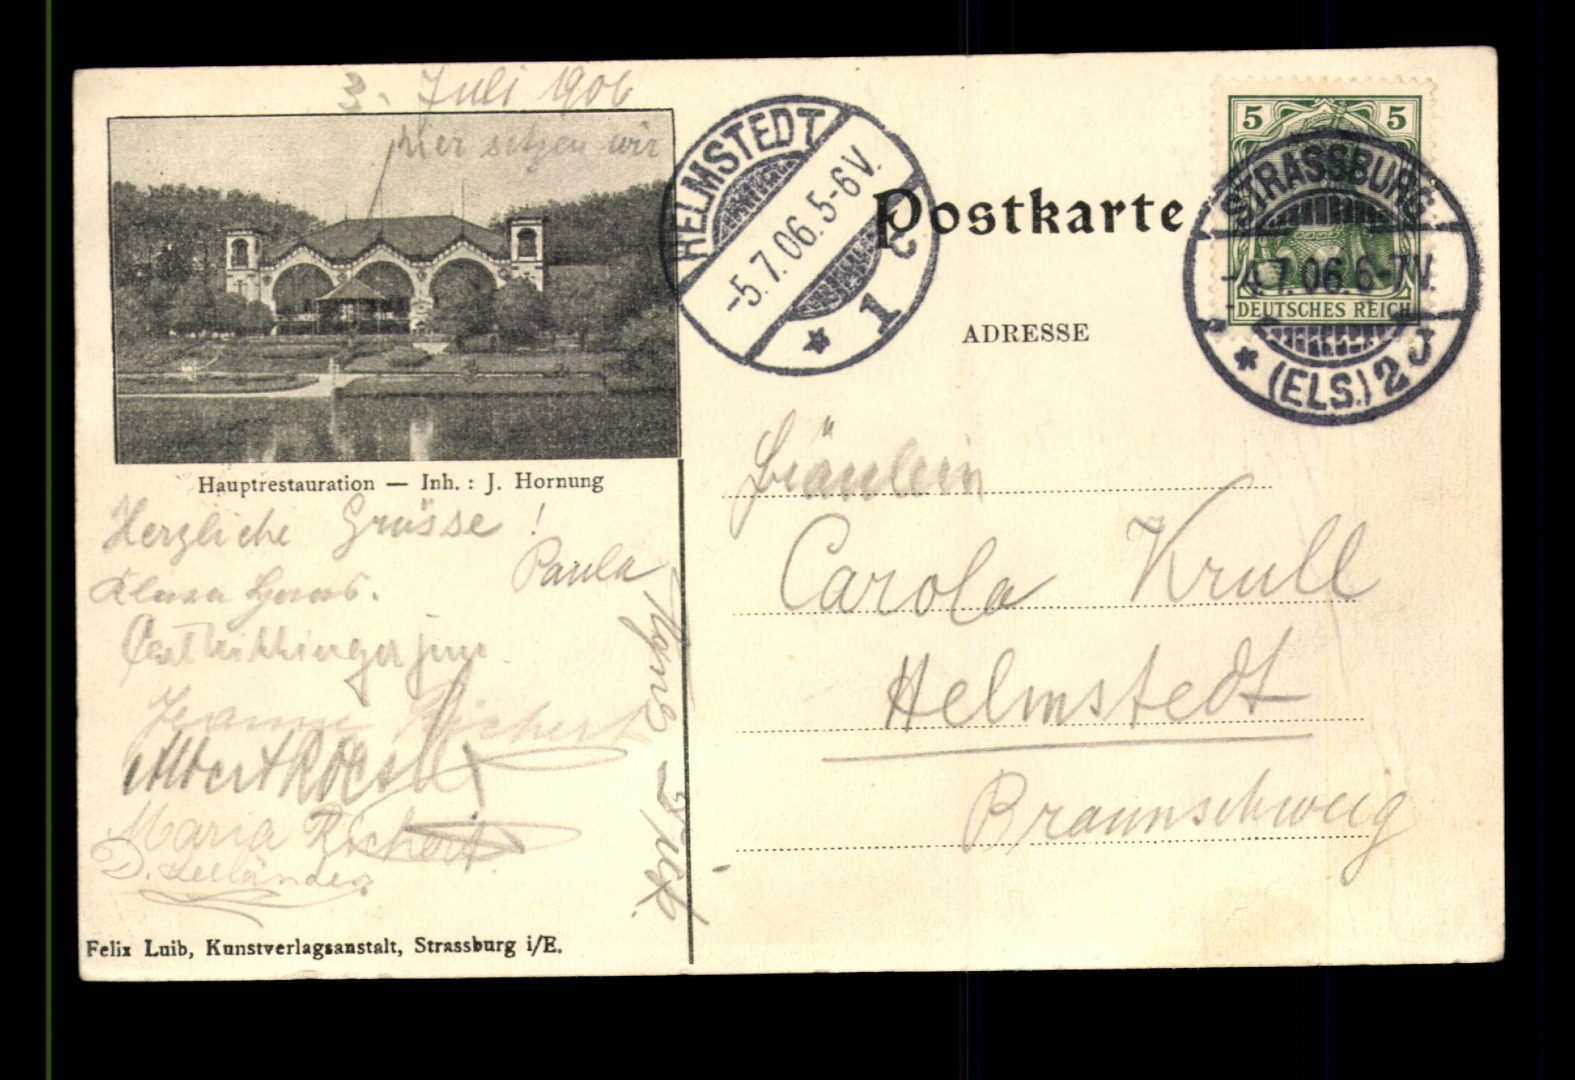 3. Juli 1906
hier sitzen wir
Hauptrestauration — Inh.: J. Hornung
Herzliche Grüsse!
Paula
Agnes
Jeanne Richert
Maria Richert
Felix Luib, Kunstverlagsanstalt, Strassburg i/E.
HELMSTEDT
-5.7.06.5-6V.
* 1 c
Postkarte
ADRESSE
5 5
DEUTSCHES REICH
STRASSBURG
-4.7.06.6-7V.
* (ELS.) 2 J
Fräulein
Carola Krull
Helmstedt
Braunschweig